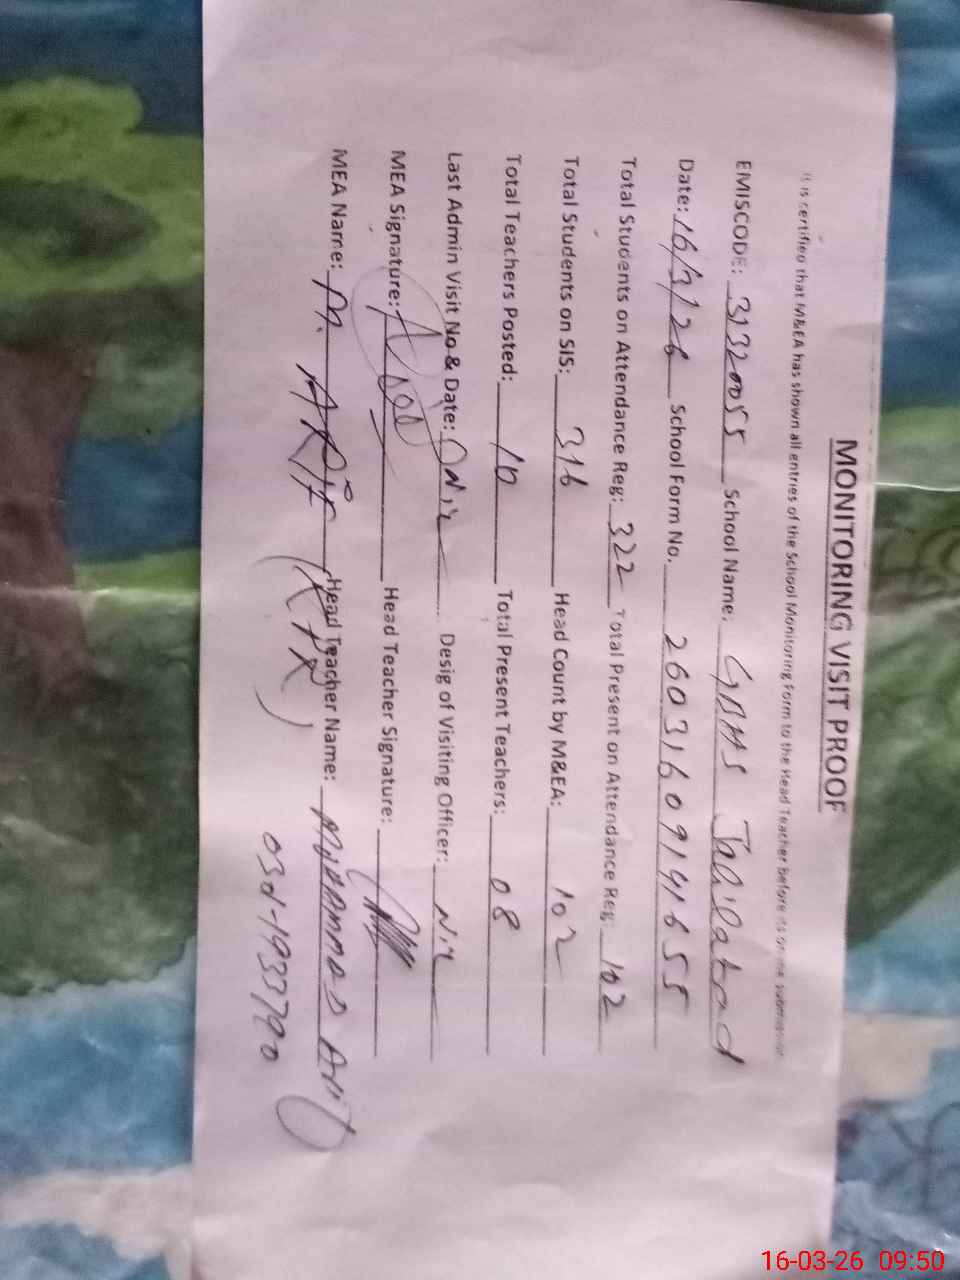 MONITORING VISIT PROOF
It is certified that M&EA has shown all entries of the School Monitoring Form to the Head Teacher before its online submission
EMISCODE: 31320055 School Name: GBHS
Date: 16/3/26 School Form No. 26031609141655
Total Students on Attendance Reg: 322 Total Present on Attendance Reg: 102
Total Students on SIS: 316 Head Count by M&EA: 102
Total Teachers Posted: 10 Total Present Teachers: 08
Last Admin Visit No & Date: Nil Desig of Visiting Officer: Nil
MEA Signature: Head Teacher Signature:
MEA Name: M. ARIF Head Teacher Name:
16-03-26 09:50